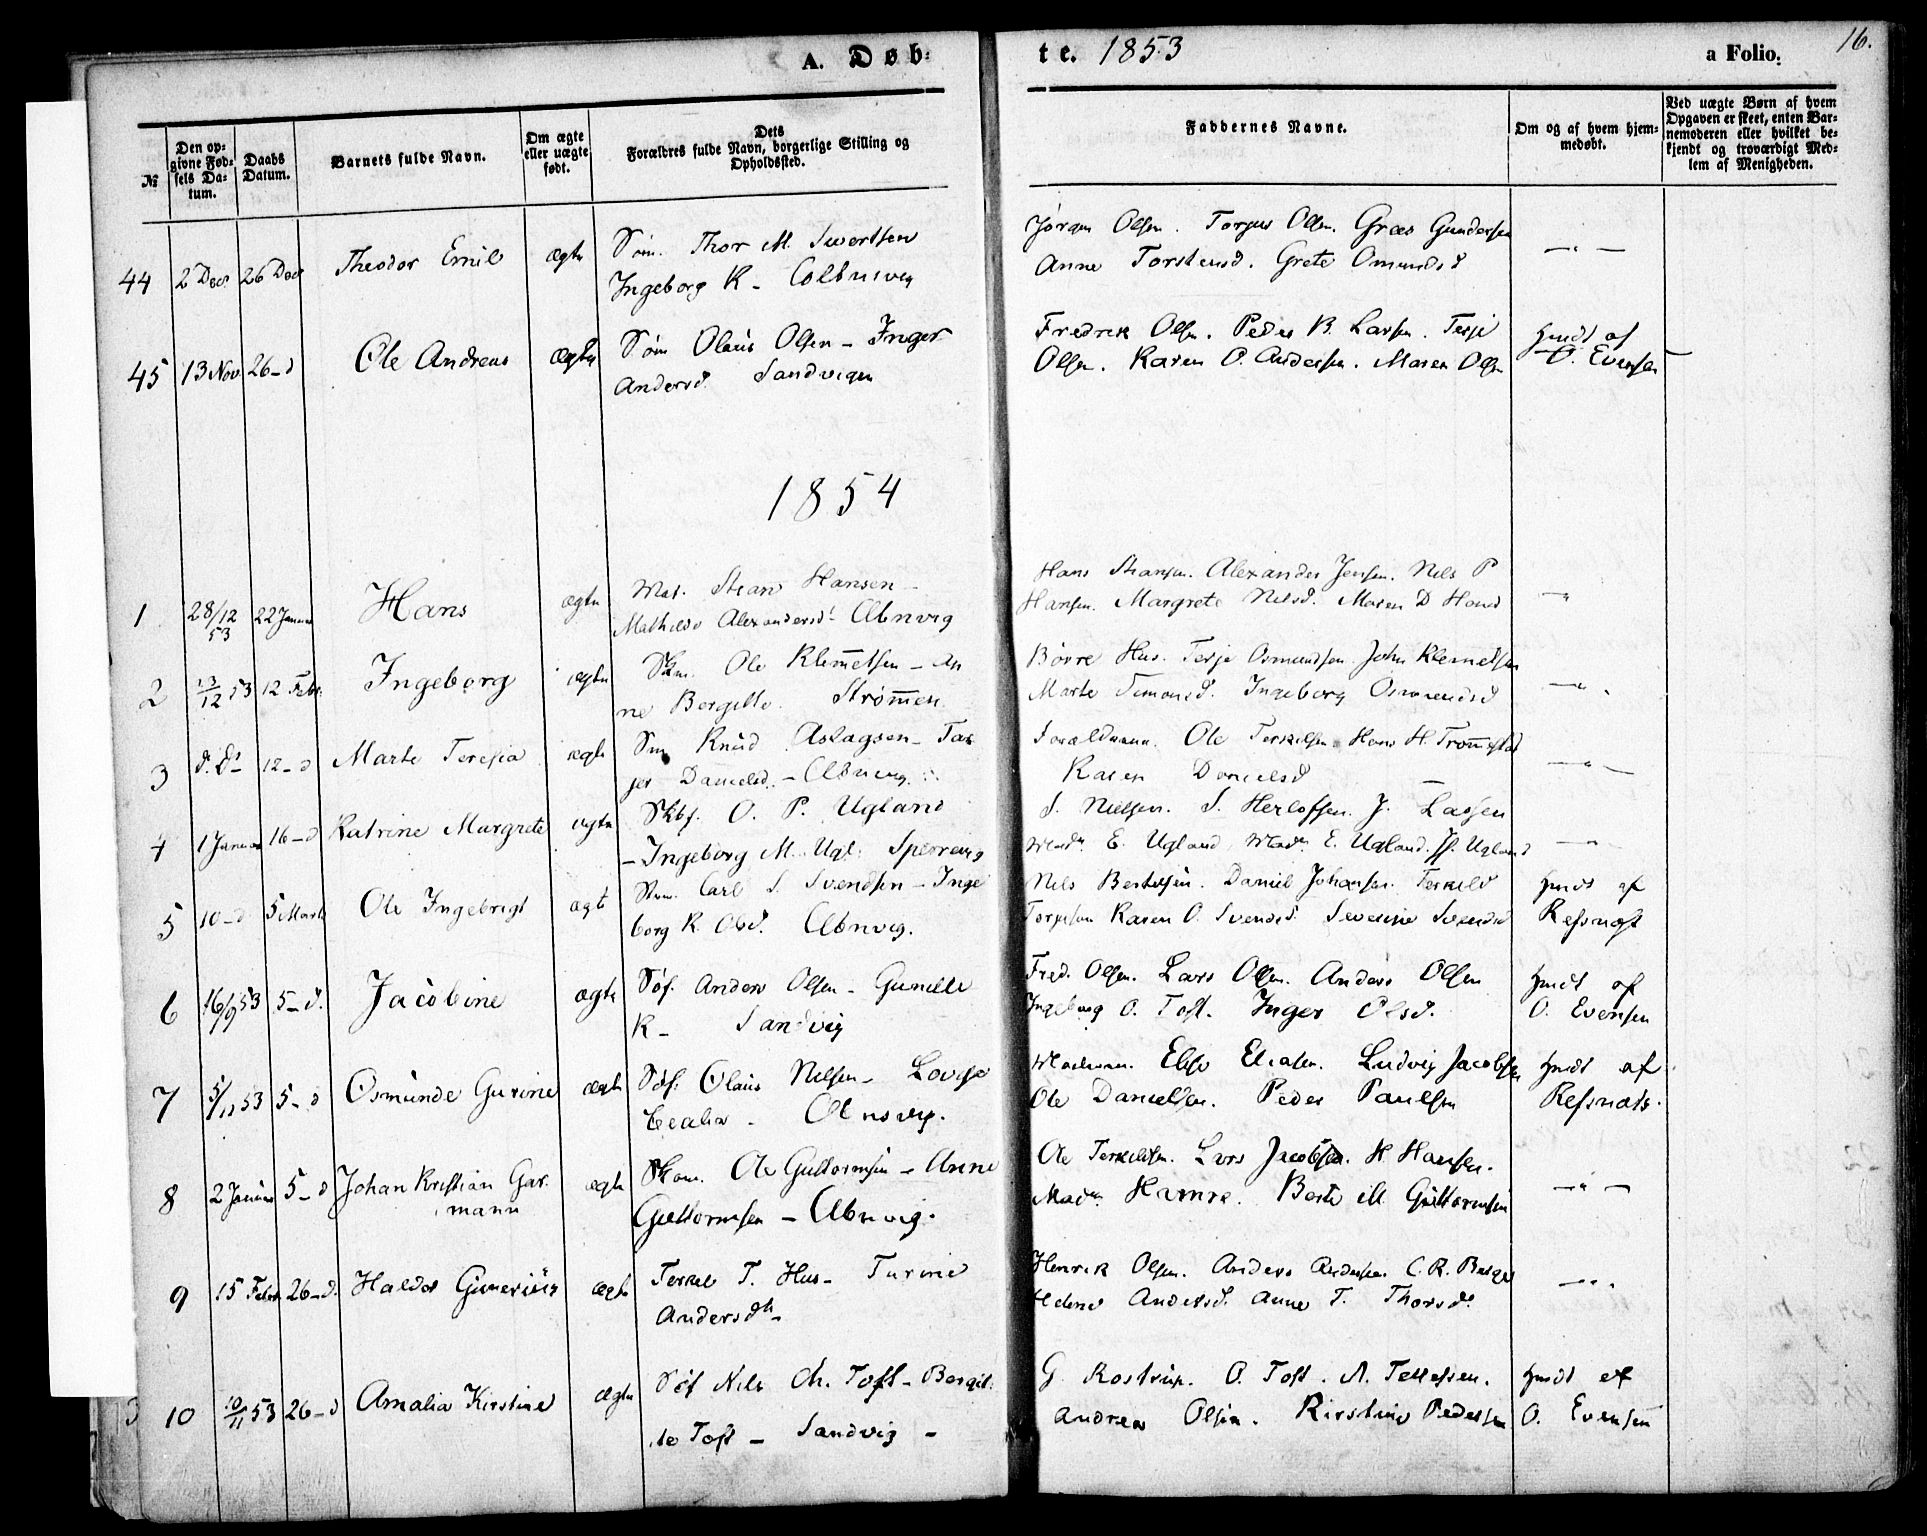 A. Døb-
te. 1853
a Folio.
16.
№
Den op-
givne Fød-
sels Da-
tum.
Daabs
Datum.
Barnets fulde Navn.
Om ægte
eller uægte
født.
Dets
Forældres fulde Navn, borgerlige Stilling og
Opholdssted.
Faddernes Navne.
Om og af hvem hjem-
medøbt.
Ved uægte Børn af hvem
Opgaven er skeet, enten Bar-
nemoderen eller hvilket be-
kjendt og troværdigt Med-
lem af Menigheden.
44 2 Decr 26 Decr Theodor Emil ægte
Thor M.
Ingeborg K -
Jørgen Olsen. Torjus Olsen. Gundersen
Anne Torstensd. Grete Omundsd
45 13 Nov 26 - d Ole Andreas ægte
Olaus Olsen - Inger
Andersd. Sandvigen
Fredrik Olsen. Peder B. Larsen. Terje
Olsen. Karen O. Andersen. Maren Olsen
hmdt af
O. Evensen
1854
1 28/12 53 22 Januar Hans ægte
Mat. Hansen -
Mathilde Alexandersd. Abnvig
Hans Alexander Jensen. Nils P
Hansen. Margrete Nilsd. Maren D
2 13/12 53 12 Febr. Ingeborg ægte
Ole Klemetsen - An
ne Bergitte. Strømmen
Børre Hus. Terje Osmundsen John Klemetsen
Marte Simonsd. Ingeborg Osmundsd
3 d. d. 12 - d Marte Teresia ægte
Knud Aslagsen - Tar
jer Danielsd. - Abnvig.
Ole Terkelsen Hans H.
Karen Danielsd
4 1 Januar 16 - d Katrine Margrete ægte
Skbf. O. P. Ugland
- Ingeborg M. Ugl.
S. Nielsen. S. Herlofsen. J. Lassen
Madm. E. Ugland, Madm. E. Ugland. Ugland
5 10 - d 5 Marts Ole Ingebrigt ægte
Carl S. Svendsen - Inge
borg K. Olsd. Abnvig.
Nils Bertelsen. Daniel Johansen. Terkild
Karen O. Svendsd. Severine Svendsd
hmdt af
Refsnæs
6 16/9 53 5 - d. Jacobine ægte
Søf. Anders Olsen - Gunille
K - Sandvig
Fred. Olsen. Lars Olsen. Anders Olsen
Ingeborg O. Toft. Inger Olsd.
hmdt af
O. Evensen
7 5/11 53 5 - d Osmunde Gurine ægte
Søf. Olaus Nilsen - Lovise
Elise Eliasen. Ludvig Jacobsen
Ole Danielsen. Peder Paulsen
hmdt af
Refsnæs.
8 2 Januar 5 - d Johan Kristian Gar-
mann ægte
Ole Guttormsen - Anne
Guttormsen - Abnvig.
Ole Terkelsen. Lars Jacobsen. H Hansen.
Madm. Berte M. Guttormsen
9 15 Febr. 26 - d. Haldor Gunerius ægte
Terkel T. Hus - Turine
Andersdt -
Henrik Olsen. Anders Andersen C. R. Berge
Helene Andersd. Anne T. Thorsd.
10 10/11 53 26 - d Amalia Kirstine ægte
Søf Nils Ch. Toft - Bergit-
te Toft - Sandvig -
G. Rostrup. O. Toft. A. Tellefsen.
Andrea Olsen. Kirstine Pedersen
hmdt af
O. Evensen